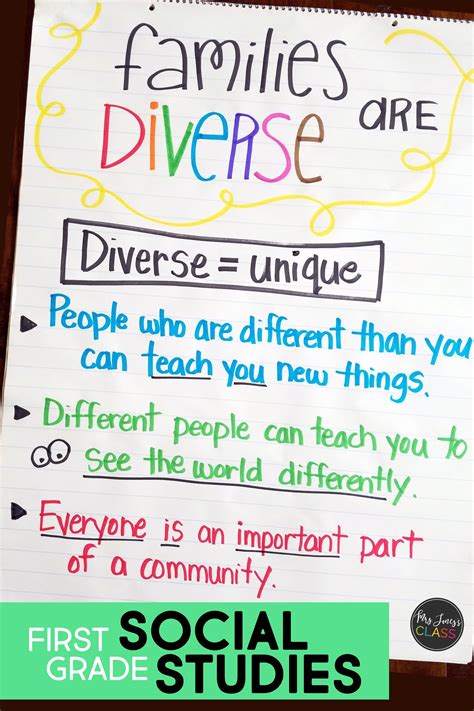 families
are
DIVERSE
Diverse = unique
People who are different than you
can teach you new things.
Different people can teach you to
see the world differently.
Everyone is an important part
of a community.
FIRST SOCIAL
GRADE STUDIES
Mrs. Jones's
CLASS